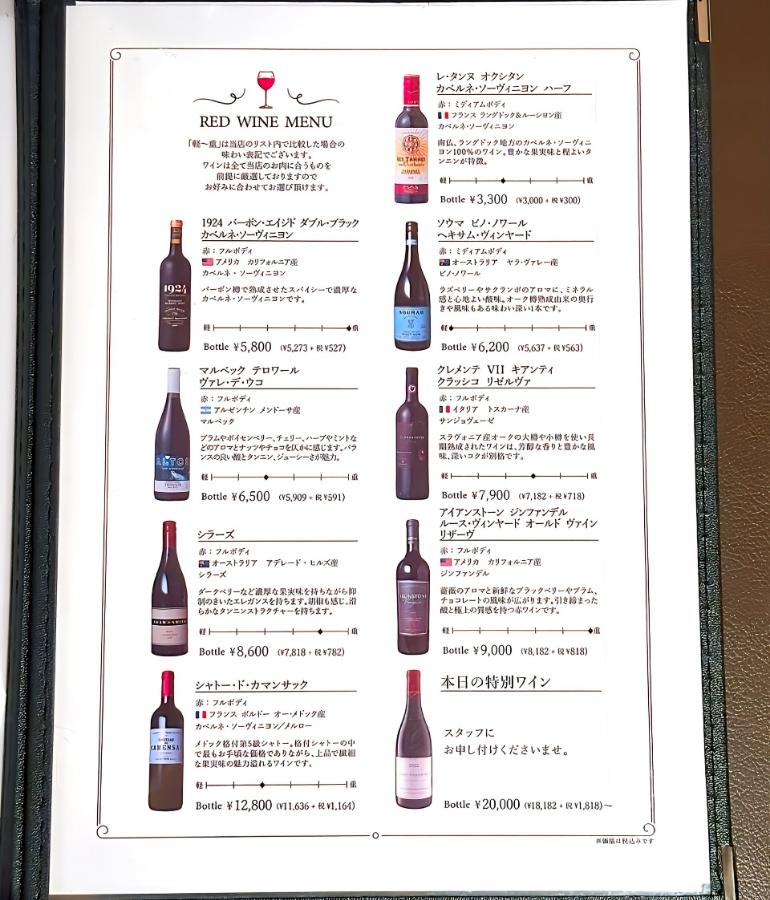 RED WINE MENU
「軽～重」は当店のリスト内で比較した場合の
味わい表記でございます。
ワインは全て当店のお肉に合うものを
前提に厳選しておりますので
お好みに合わせてお選び頂けます。
レ・タンヌ オクシタン
カベルネ・ソーヴィニヨン ハーフ
赤：ミディアムボディ
フランス ラングドック&ルーション産
カベルネ・ソーヴィニヨン
南仏、ラングドック地方のカベルネ・ソーヴィニ
ヨン100%のワイン。豊かな果実味と程よいタ
ンニンが特徴。
軽 重
Bottle ¥3,300 (¥3,000 + 税 ¥300)
1924 バーボン・エイジド ダブル・ブラック
カベルネ・ソーヴィニヨン
赤：フルボディ
アメリカ カリフォルニア産
カベルネ・ソーヴィニヨン
バーボン樽で熟成させたスパイシーで濃厚な
カベルネ・ソーヴィニヨンです。
軽 重
Bottle ¥5,800 (¥5,273 + 税 ¥527)
1924
ソウマ ピノ・ノワール
ヘキサム・ヴィンヤード
赤：ミディアムボディ
オーストラリア ヤラ・ヴァレー産
ピノ・ノワール
ラズベリーやサクランボのアロマに、ミネラル
感と心地よい酸味。オーク樽熟成由来の奥行
きや風味もある味わい深い1本です。
軽 重
Bottle ¥6,200 (¥5,637 + 税 ¥563)
SOUMAH
マルベック テロワール
ヴァレ・デ・ウコ
赤：フルボディ
アルゼンチン メンドーサ産
マルベック
プラムやボイセンベリー、チェリー、ハーブやミントな
どのアロマとナッツやチョコを仄かに感じます。バラ
ンスの良い酸とタンニン、ジューシーさが魅力。
軽 重
Bottle ¥6,500 (¥5,909 + 税 ¥591)
クレメンテ VII キアンティ
クラッシコ リゼルヴァ
赤：フルボディ
イタリア トスカーナ産
サンジョヴェーゼ
スラヴォニア産オークの大樽や小樽を使い長
期熟成されたワインは、芳醇な香りと豊かな風
味、深いコクが別格です。
軽 重
Bottle ¥7,900 (¥7,182 + 税 ¥718)
シラーズ
赤：フルボディ
オーストラリア アデレード・ヒルズ産
シラーズ
ダークベリーなど濃厚な果実味を持ちながら抑
制のきいたエレガンスを持ちます。胡椒も感じ、滑
らかなタンニンストラクチャーを持ちます。
軽 重
Bottle ¥8,600 (¥7,818 + 税 ¥782)
アイアンストーン ジンファンデル
ルース・ヴィンヤード オールド ヴァイン
リザーヴ
赤：フルボディ
アメリカ カリフォルニア産
ジンファンデル
薔薇のアロマと新鮮なブラックベリーやプラム、
チョコレートの風味が広がります。引き締まった
酸と極上の質感を持つ赤ワインです。
軽 重
Bottle ¥9,000 (¥8,182 + 税 ¥818)
シャトー・ド・カマンサック
赤：フルボディ
フランス ボルドー オー・メドック産
カベルネ・ソーヴィニヨン/メルロー
メドック格付第5級シャトー。格付シャトーの中
で最もお手頃な価格でありながら、上品で繊細
な果実味の魅力溢れるワインです。
軽 重
Bottle ¥12,800 (¥11,636 + 税 ¥1,164)
本日の特別ワイン
スタッフに
お申し付けくださいませ。
Bottle ¥20,000 (¥18,182 + 税 ¥1,818)～
※価格は税込みです